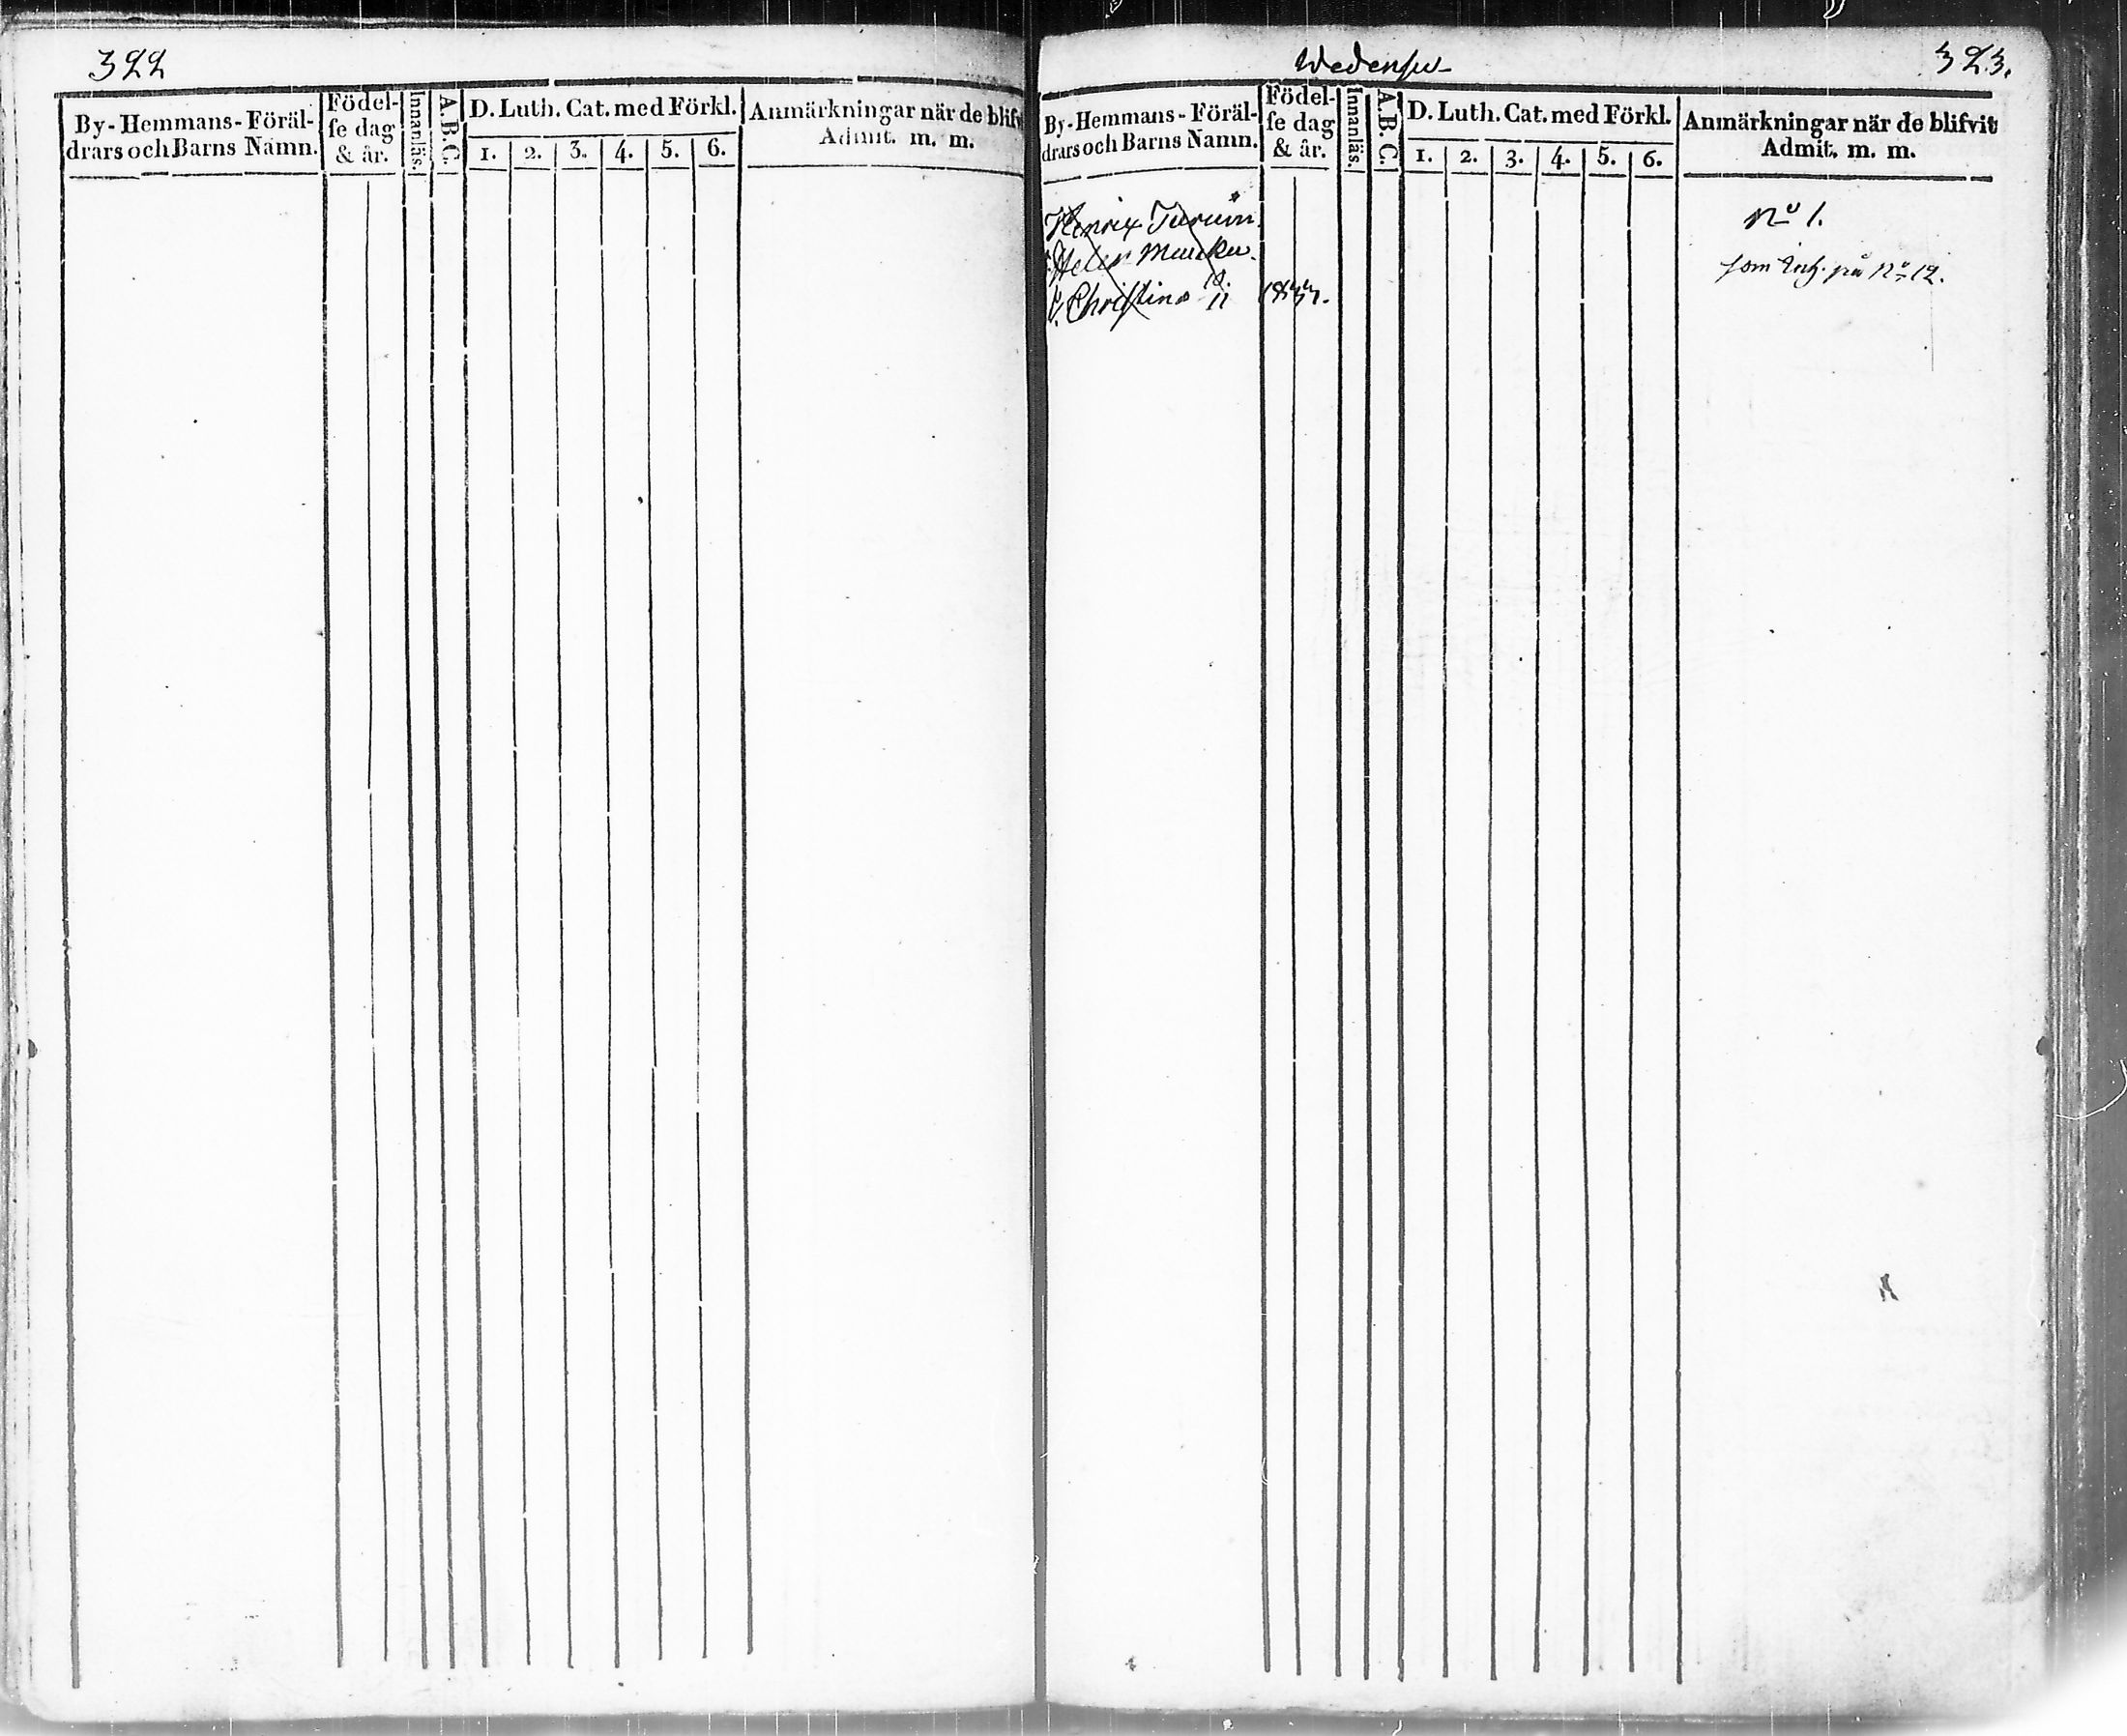 322
By-Hemmans-Föräl-
drars och Barns Namn.
Födel-
se dag
& år.
Innanläs.
A.B.C.
D. Luth. Cat. med Förkl.
1. 2. 3. 4. 5. 6.
Anmärkningar när de blifvi
Admit. m. m.
323.
By-Hemmans-Föräl-
drars och Barns Namn.
Födel-
se dag
& år.
Innanläs.
A.B.C.
D. Luth. Cat. med Förkl.
1. 2. 3. 4. 5. 6.
Anmärkningar när de blifvit
Admit. m. m.
Henrix
No 1.
Christina
som Inh. på No 12.